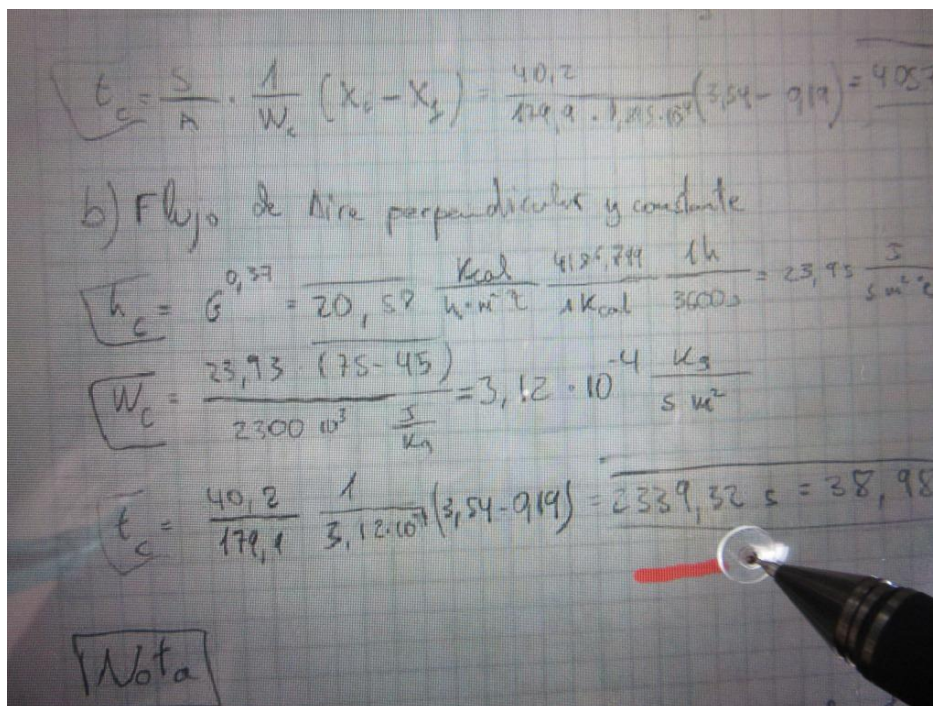 t_c = S/A · 1/W_c (X_c - X_f) = 40,2 / 179,9 · (3,54 - 0,19) = 4057
b) Flujo de Aire perpendicular y constante
h_c = G^0,37 = 20,58 Kcal/h·m²·ºC 4185,799/1Kcal 1h/3600s = 23,95 J/s m² ºC
W_c = 23,93 · (75-45) / 2300 10³ J/Kg = 3,12 · 10^-4 Kg/s m²
t_c = 40,2/179,9 1/3,12·10^-4 (3,54-0,19) = 2339,32 s = 38,98
Nota